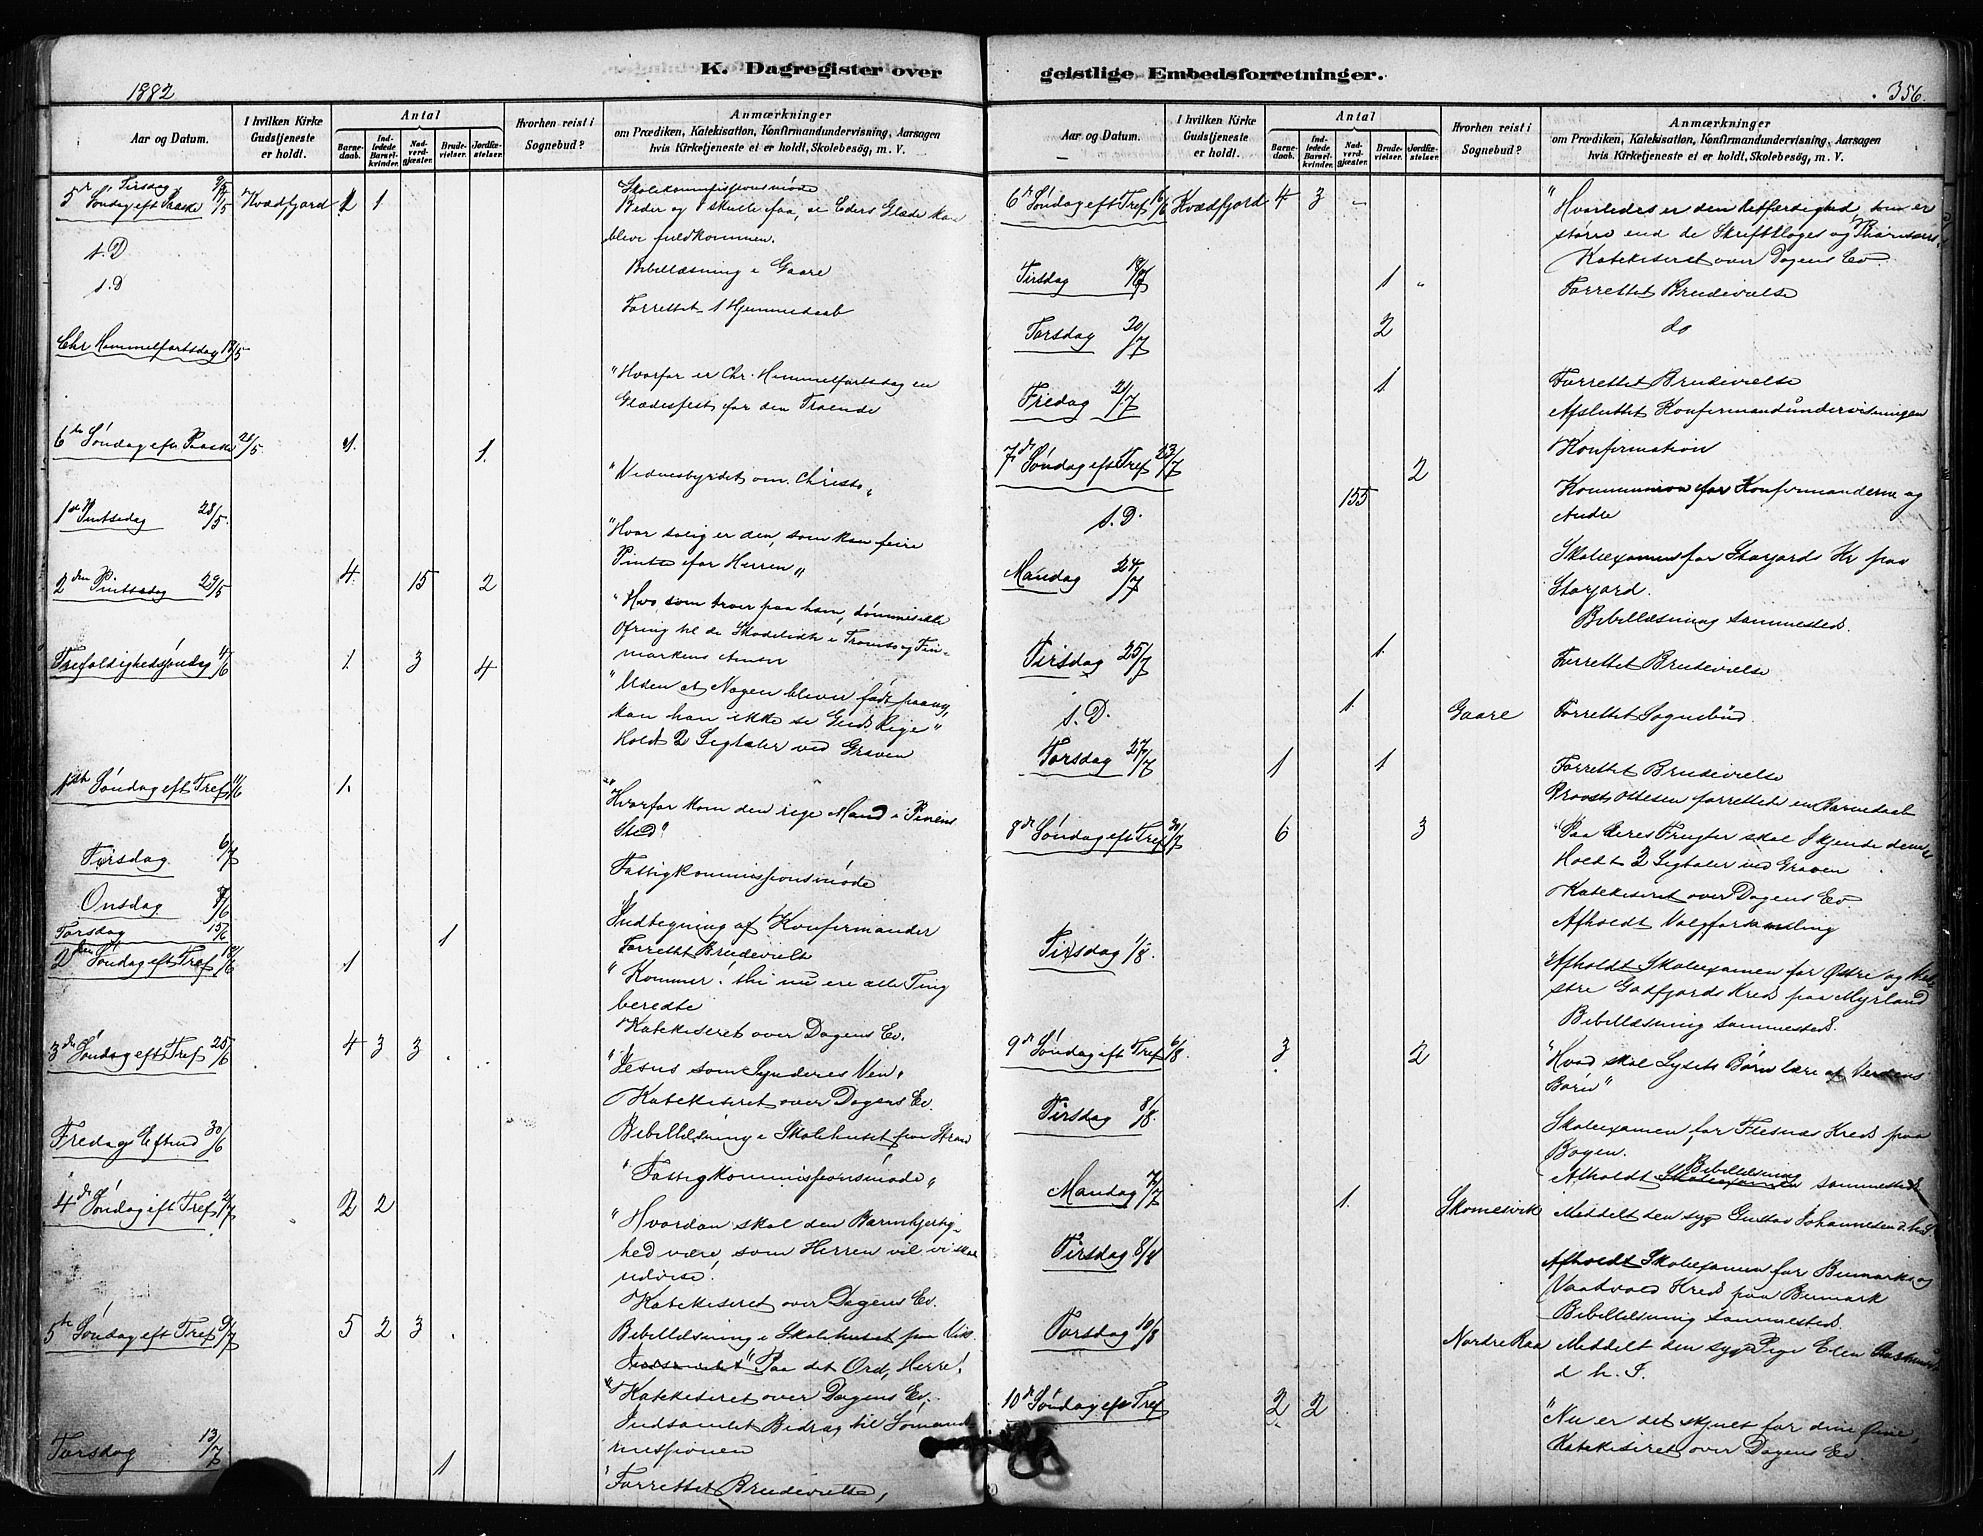 K. Dagregister over
1882
Aar og Datum.
I hvilken Kirke Gudstjeneste er holdt.
Antal
Barne-daab.
Ind-ledede Barsel-kvinder.
Nad-verd-gjæster.
Brude-vielser.
Jordfæ-stelser.
Hvorhen reist i Sognebud?
Anmærkninger
om Prædiken, Katekisation, Konfirmandundervisning, Aarsagen
hvis Kirketjeneste ei er holdt, Skolebesög, m. V.
Tirsdag 9/5 Skolekommissionsmøde
5 Søndag eft Paaske 14/5 Kvædfjord 1 1 Beder og I skulle faa, at Eders Glæde kan
blive fuldkommen.
s. D Bibellæsning i Gaare
s. D Forrettet 1 Hjemmedaab
Chr Himmelfartsdag 18/5
"Hvorfor er Chr. Himmelfartsdag en
Glædesfest for den Troende
6te Søndag eft Paaske 21/5 1. 1.
"Vidnesbyrdet om Christo"
1ste Pintsedag 28/5.
"Hvor salig er den, som kan feire
Pintse for Herren"
2den Pintsedag 29/5 4. 15 2
"Hvo som troer paa ham, dømmes ikke
Ofring til de Skadelidte i Tromsø og Fin-
markens Amter
Trefoldighedssøndag 4/6 1. 3 4
"Uden at Nogen bliver født paany,
kan han ikke se Guds Rige"
Holdt 2 Ligtaler ved Graven
1ste Søndag eft Tref 11/6 1.
"Hvorfor kom den rige Mand i Pinens
Sted"
Tirsdag 6/7
Fattigkommissionsmøde
Onsdag /6
Indtegning af Konfirmander
Torsdag 15/6 1
Forrettet Brudevielse
2den Søndag eft Tref 18/6 1
"Kommer! thi nu ere alle Ting
beredte
Katekiseret over Dagens Ev.
3die Søndag eft Tref 25/6 4 3 3
"Jesus som Synderes Ven"
Katekiseret over Dagens Ev.
Bibellæsning i Skolehuset paa Strand
Fredag Eftmd 30/6
"Fattigkommissionsmøde"
4de Søndag eft Tref 2/7 2 2
"Hvordan skal den Barmhjertig-
hed være som Herren vil vi skal
udvise!
Katekiseret over Dagens Ev.
5te Søndag eft Tref 9/7 5 2 3
Bibellæsning i Skolehuset paa Vik
Indsamlet "Paa dit Ord, Herre!
"Katekiseret over Dagens Ev.
Indsamlet Bidrag til Sømands
missionen
Torsdag 13/7 1
Forrettet Brudevielse,
geistlige Embedsforretninger.
356.
Aar og Datum.
I hvilken Kirke Gudstjeneste er holdt.
Antal
Barne-daab.
Ind-ledede Barsel-kvinder.
Nad-verd-gjæster.
Brude-vielser.
Jordfæ-stelser.
Hvorhen reist i Sognebud?
Anmærkninger
om Prædiken, Katekisation, Konfirmandundervisning, Aarsagen
hvis Kirketjeneste ei er holdt, Skolebesög, m. V.
6te Søndag eft Tref 16/6 Kvædfjord 4 3
"Hvorledes er den Retfærdighed, som er
større end de Skriftkloges og Pharisæers
Katekiseret over Dagens Ev.
Tirsdag 18/7 1 Forrettet Brudevielse
Torsdag 20/7 2 do
Fredag 21/7 1 Forrettet Brudevielse
Afsluttet Konfirmandundervisningen
7de Søndag eft Tref 23/7 2 Konfirmation
s. D. 155 Kommunion for Konfirmanderne og
Andre
Mandag 24/7 Skoleexamen for Storjords Kr paa
Storjord.
Bibellæsning sammesteds.
Tirsdag 25/7 1. Forrettet Brudevielse
s. D. 1. Gaare Forrettet Sognebud.
Torsdag 27/7 1 1 Forrettet Brudevielse
Provst Ottesen forrettet en Barnedaab
8de Søndag eft Tref 30/7 6 3 "Paa deres Frugter skal I kjende dem"
Holdt 3 Ligtaler ved Graven
Katekiseret over Dagens Ev.
Afholdt Valgforsamling
Tirsdag 1/8. Afholdt Skoleexamen for Østre og Ve-
stre Godfjords Kreds paa Myrland
Bibellæsning sammesteds.
9de Søndag eft Tref 6/8 3 2 "Hvad skal Lysets Børn lære af Verdens
Børn"
Tirsdag 8/8. Skoleexamen for Flesnes Kreds paa
Bogen.
Bibellæsning
Afholdt Skoleexamen sammesteds
Mandag 7/7 1. Skomesvik Meddelt den syg Gustav Johannesen d. h. S.
Tirsdag 8/8 Afholdt Skoleexamen for Bumarks og
Vaatvold Kreds paa Bumark
Bibellæsning sammesteds.
Torsdag 10/8 Nordre Raa Meddelt den syg Pige Elen
d h. S.
10de Søndag eft Tref 2 2 "Nu er det skjult for dine Øine,
Katekiseret over Dagens Ev.